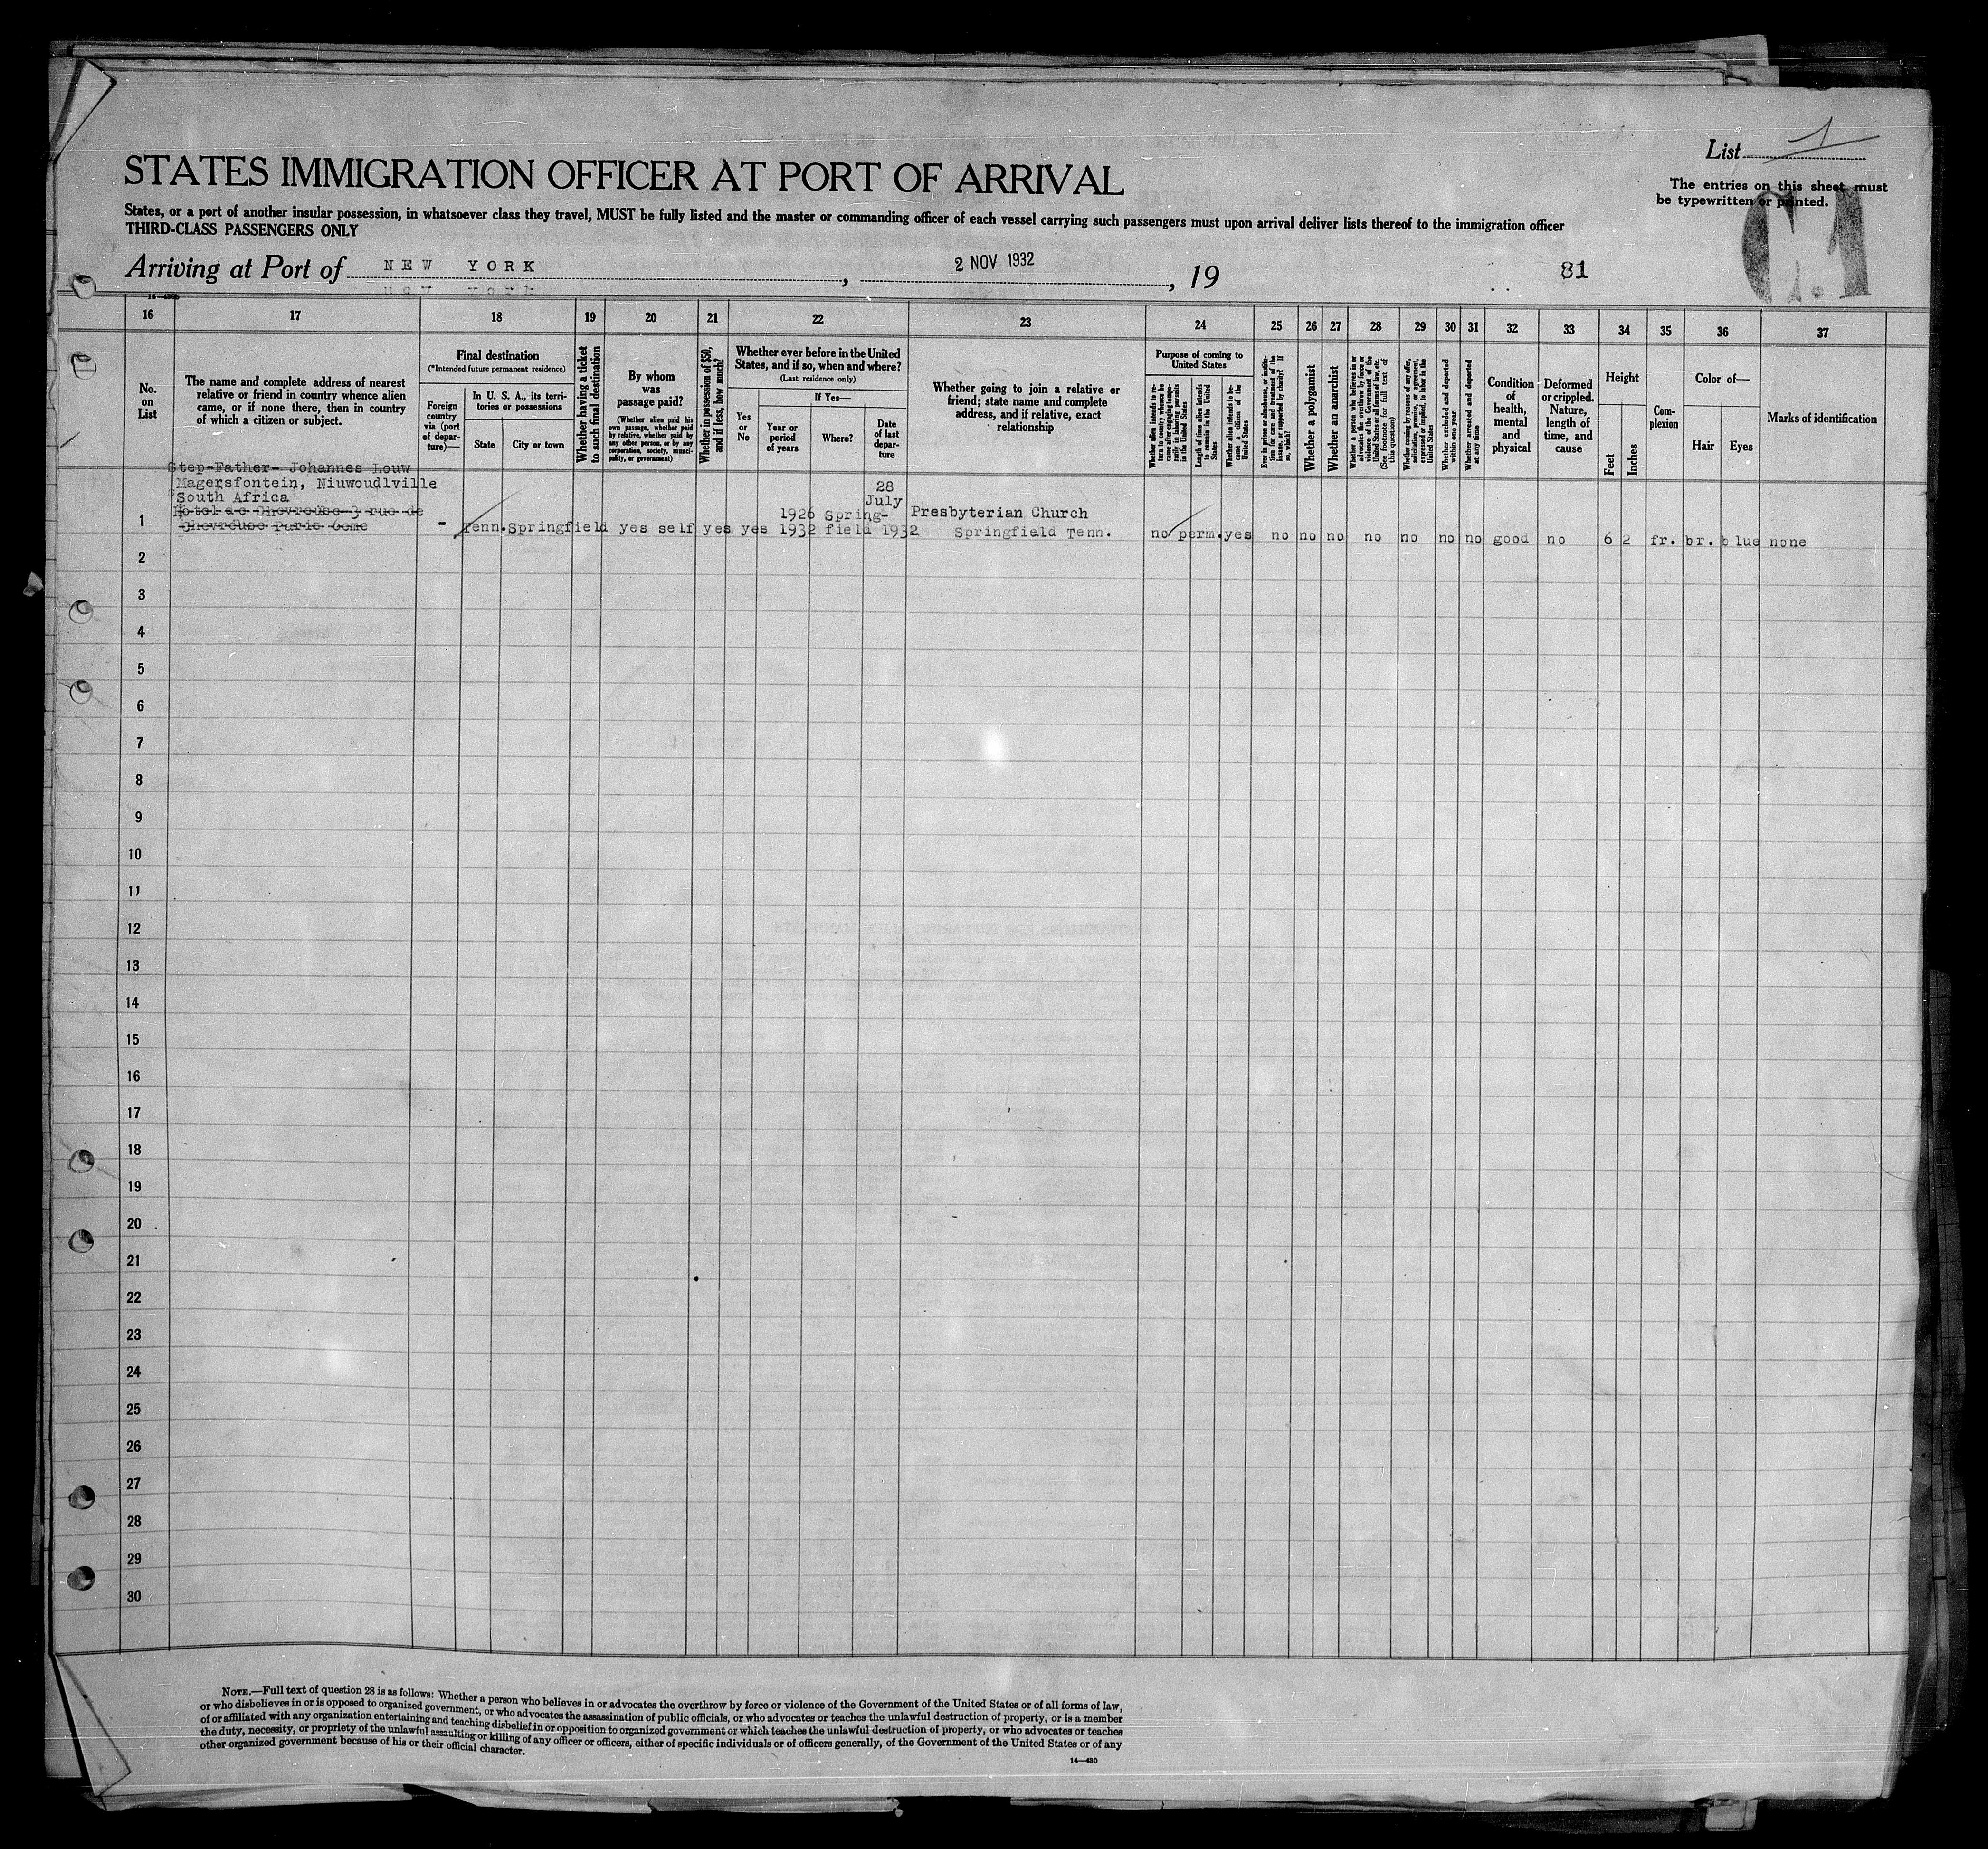 List 1
The entries on this sheet must
be typewritten or printed.
STATES IMMIGRATION OFFICER AT PORT OF ARRIVAL
States, or a port of another insular possession, in whatsoever class they travel, MUST be fully listed and the master or commanding officer of each vessel carrying such passengers must upon arrival deliver lists thereof to the immigration officer
THIRD-CLASS PASSENGERS ONLY
C.1
Arriving at Port of NEW YORK, 2 NOV 1932, 19
81
16 17 18 19 20 21 22 23 24 25 26 27 28 29 30 31 32 33 34 35 36 37
No.
on
List
The name and complete address of nearest
relative or friend in country whence alien
came, or if none there, then in country
of which a citizen or subject.
Final destination
(*Intended future permanent residence)
Foreign
country
via (port
of depar-
ture)—
In U. S. A., its terri-
tories or possessions
State
City or town
Whether having a ticket
to such final destination
By whom
was
passage paid?
(Whether alien paid his
own passage, whether paid
by relative, whether paid by
any other person, or by any
corporation, society, munici-
pality, or government)
Whether in possession of $50,
and if less, how much?
Whether ever before in the United
States, and if so, when and where?
(Last residence only)
Yes
or
No
If Yes—
Year or
period
of years
Where?
Date
of last
depar-
ture
Whether going to join a relative or
friend; state name and complete
address, and if relative, exact
relationship
Purpose of coming to
United States
Whether alien intends to re-
turn to country whence he
came after engaging tempo-
rarily in laboring pursuits
in the United States
Length of time alien intends
to remain in the United
States
Whether alien intends to be-
come a citizen of the
United States
Ever in prison or almshouse, or institu-
tion for care and treatment of the
insane, or supported by charity? If
so, which?
Whether a polygamist
Whether an anarchist
Whether a person who believes in or
advocates the overthrow by force or
violence of the Government of the
United States or all forms of law, etc.
(See footnote for full text of
this question)
Whether coming by reasons of any offer,
solicitation, promise, or agreement,
expressed or implied, to labor in the
United States
Whether excluded and deported
within one year
Whether arrested and deported
at any time
Condition
of
health,
mental
and
physical
Deformed
or crippled.
Nature,
length of
time, and
cause
Height
Feet
Inches
Com-
plexion
Color of—
Hair
Eyes
Marks of identification
Step-Father- Johannes Louw
Magersfontein, Niuwoudlville
South Africa
Hotel de Chevreuse 3 rue de
Chevreuse Paris 6eme
28
July
1926 Spring- Presbyterian Church
1 - Tenn. Springfield yes self yes yes 1932 field 1932 Springfield Tenn. no perm. yes no no no no no no no good no 6 2 fr. br. blue none
2
3
4
5
6
7
8
9
10
11
12
13
14
15
16
17
18
19
20
21
22
23
24
25
26
27
28
29
30
NOTE.—Full text of question 28 is as follows: Whether a person who believes in or advocates the overthrow by force or violence of the Government of the United States or of all forms of law,
or who disbelieves in or is opposed to organized government, or who advocates the assassination of public officials, or who advocates or teaches the unlawful destruction of property, or is a member
of or affiliated with any organization entertaining and teaching disbelief in or opposition to organized government or which teaches the unlawful destruction of property, or who advocates or teaches
the duty, necessity, or propriety of the unlawful assaulting or killing of any officer or officers, either of specific individuals or of officers generally, of the Government of the United States or of any
other organized government because of his or their official character.
14—430